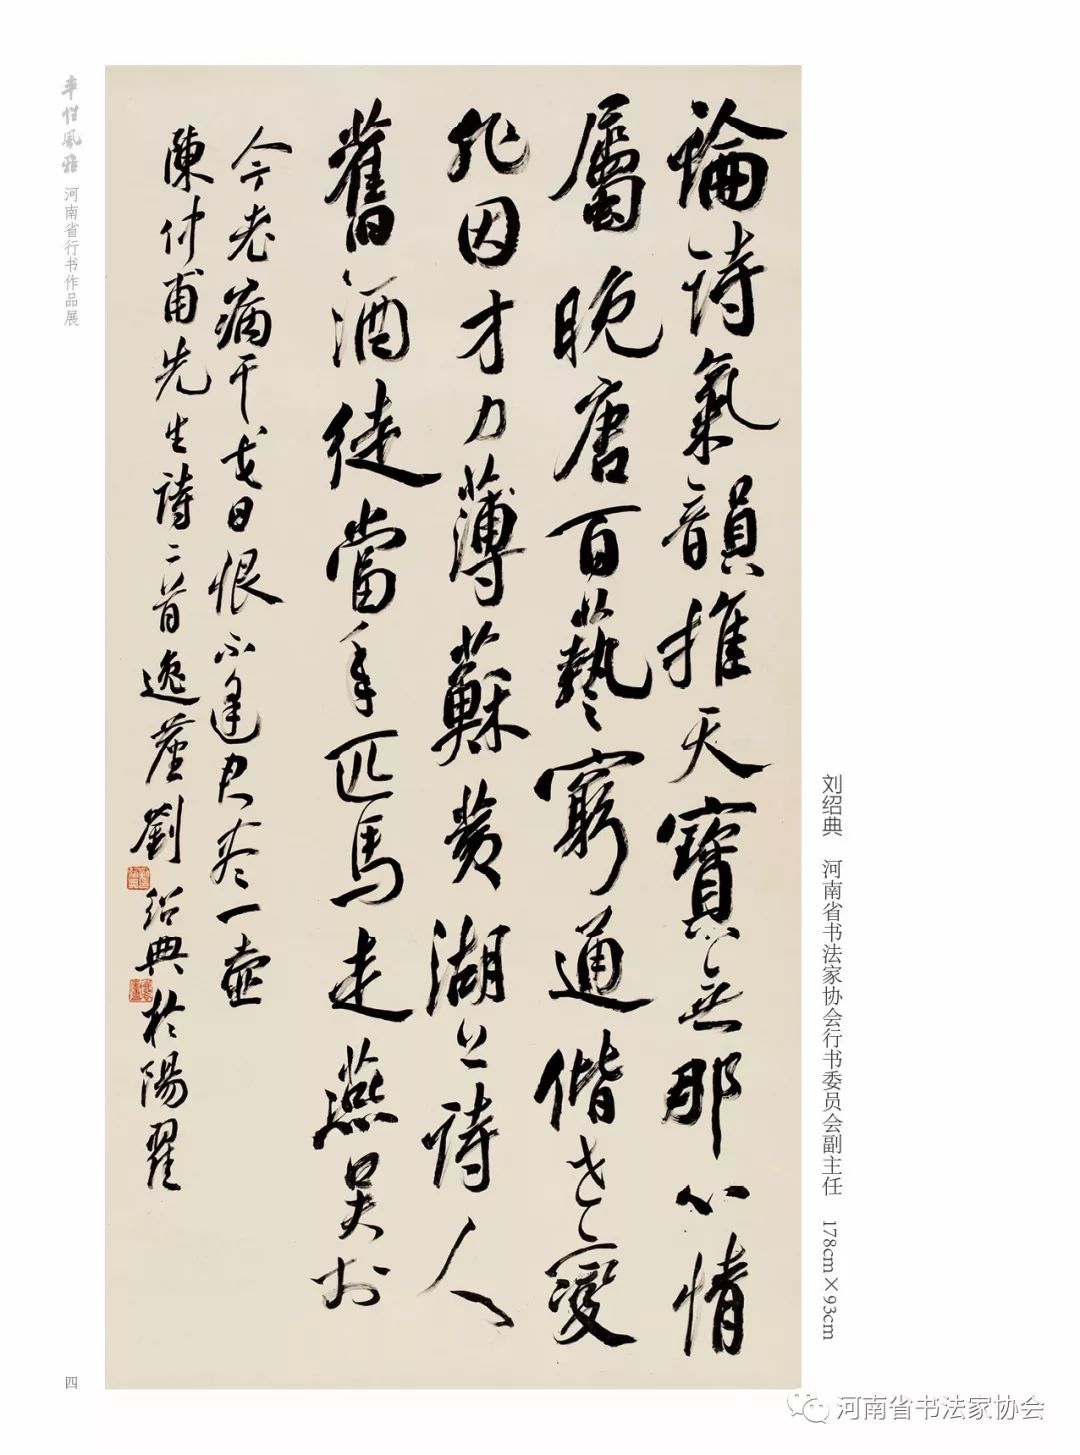 率性風雅 河南省行书作品展
論詩氣韻推天寶無那心情
屬晚唐百藝窮通偕世變
非因才力薄蘇黃湖上詩人
舊酒徒當年匹馬走燕吳於
今老病干戈日恨不逢君盡一壺
陳付甫先生詩二首逸劉紹典於陽翟
刘绍典 河南省书法家协会行书委员会副主任 178cm×93cm
四
河南省书法家协会